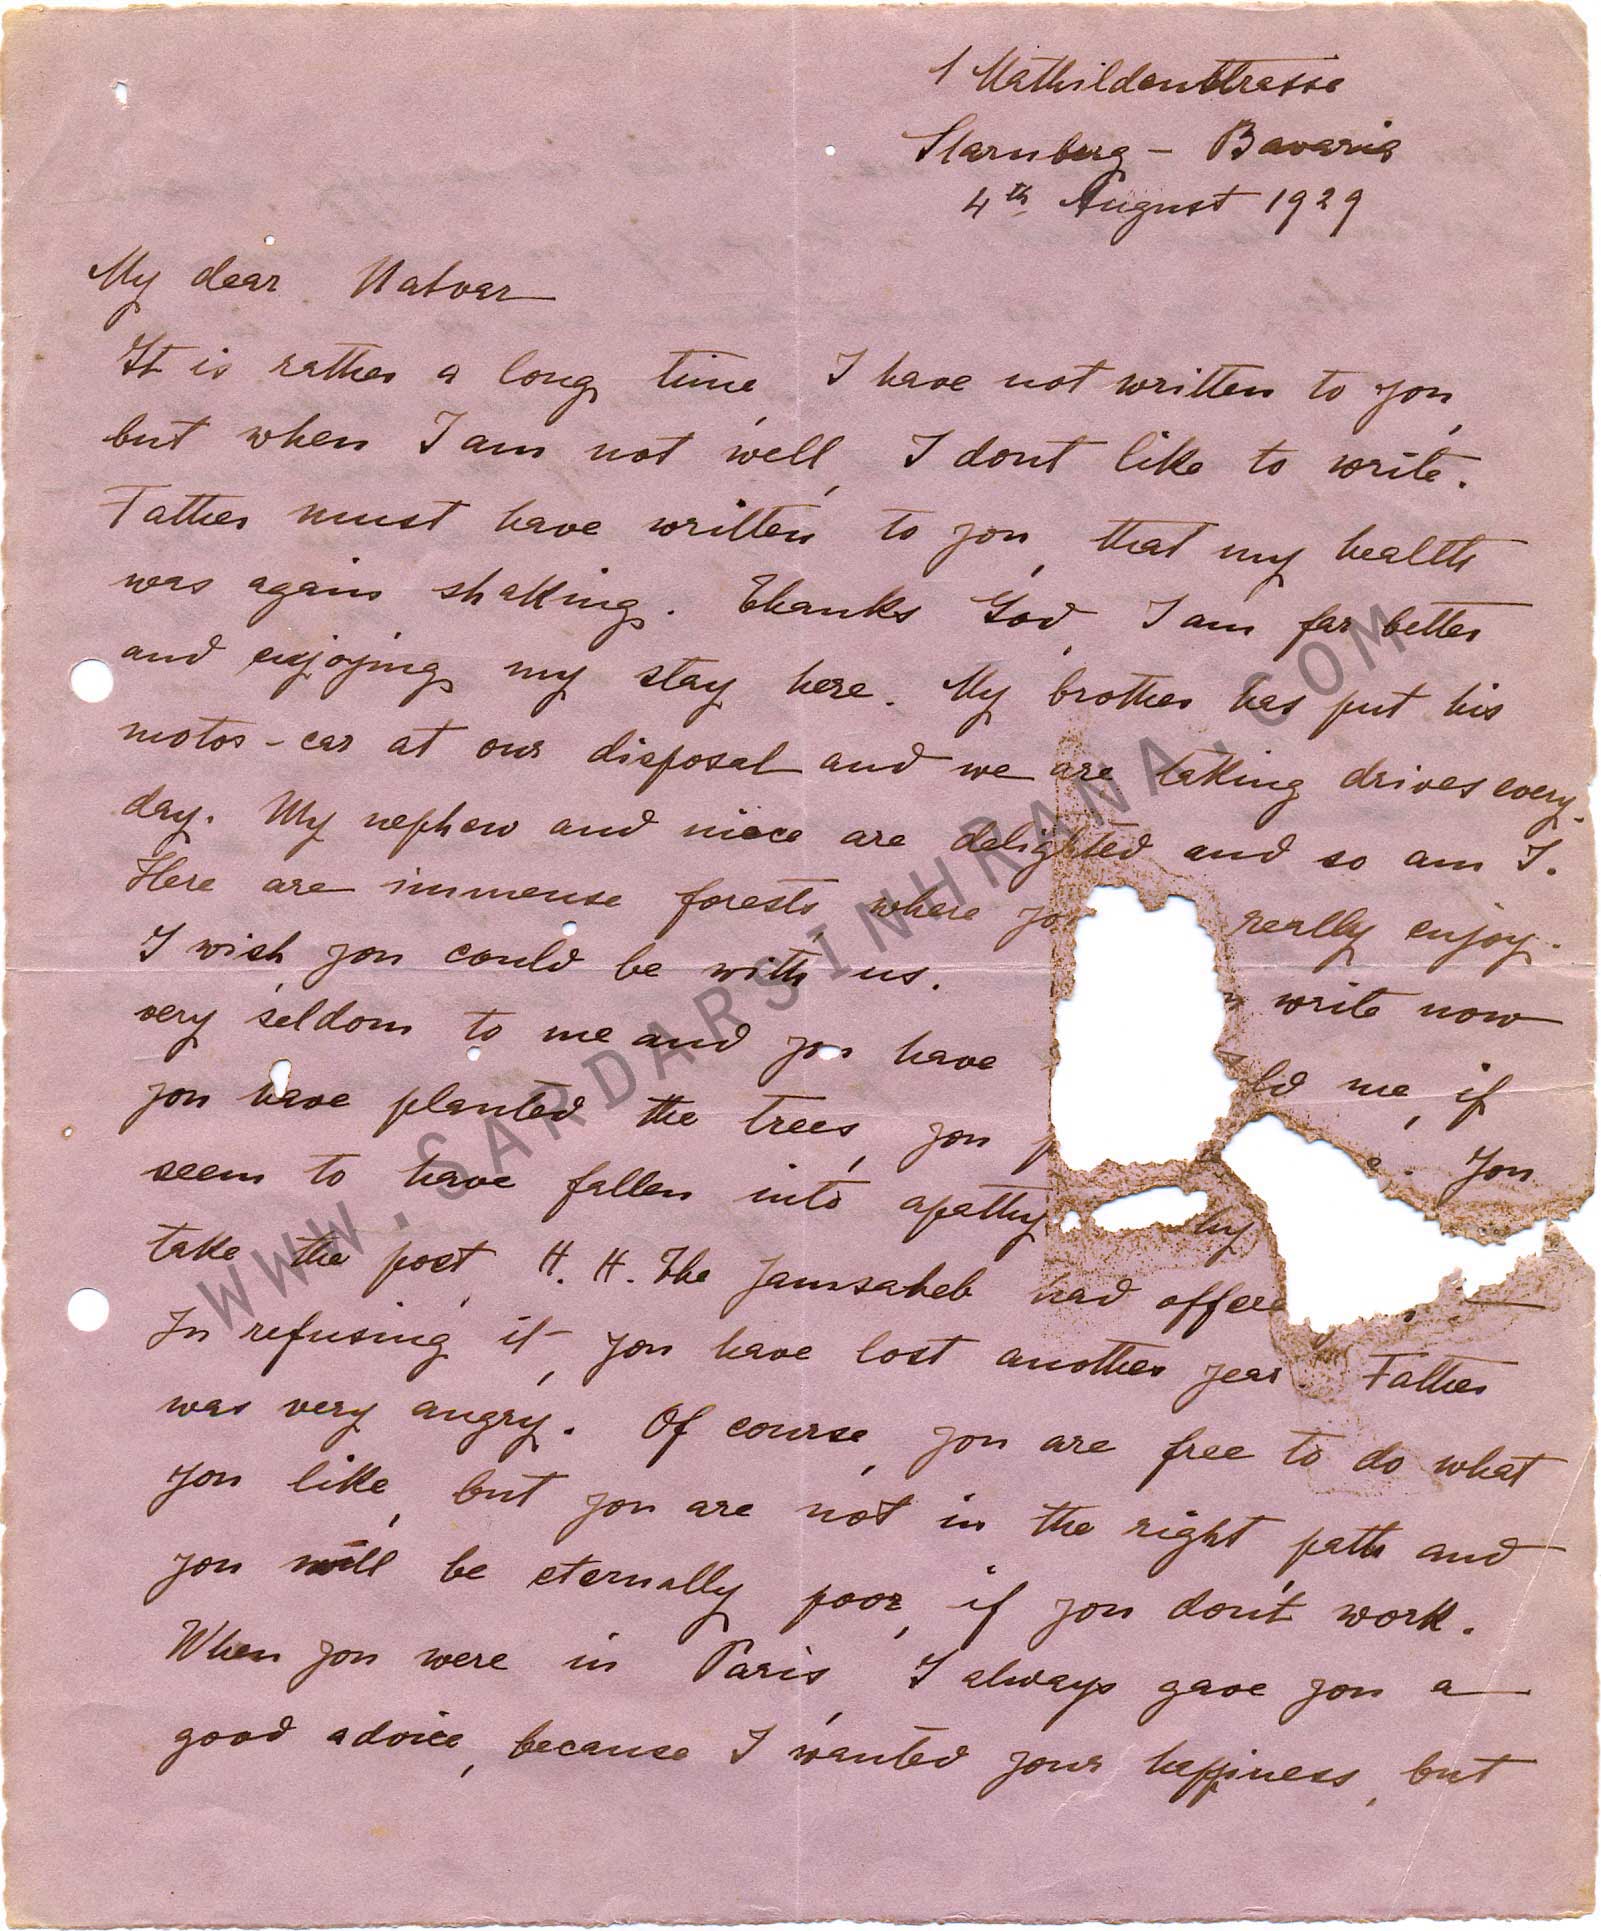 1 Mathildenstrasse
Starnberg - Bavaria
4th August 1929
My dear Natvar
It is rather a long time, I have not written to you,
but when I am not well, I dont like to write.
Father must have written to you, that my health
was again shaking. Thanks God, I am far better
and enjoying my stay here. My brother has put his
motor-car at our disposal and we are taking drives every
day. My nephew and niece are delighted and so am I.
Here are immense forests where really enjoy.
I wish you could be with us. write now
very seldom to me and you have me, if
you have planted the trees, you You
seem to have fallen into apathy
take the post, H. H. The Jamsaheb had
In refusing it, you have lost another year. Father
was very angry. Of course, you are free to do what
you like, but you are not in the right path and
you will be eternally poor, if you don't work.
When you were in Paris, I always gave you a
good advice, because I wanted your happiness, but
WWW.SARDARSINHRANA.COM